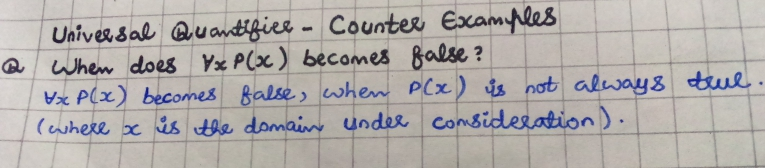 Universal Quantifier - Counter Examples
Q When does ∀x P(x) becomes false?
∀x P(x) becomes false, when P(x) is not always true.
(where x is the domain under consideration).